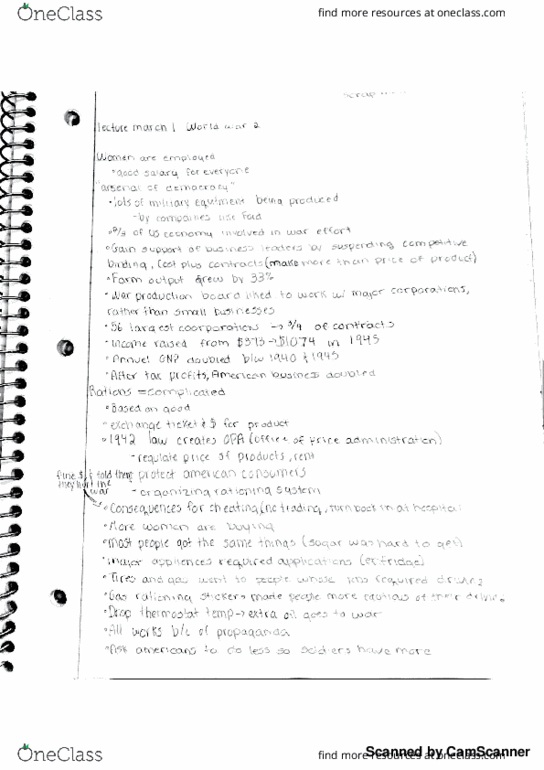 OneClass
find more resources at oneclass.com
lecture march 1 World War 2
Women are employed
•good salary for everyone
"arsenal of democracy"
•lots of military equitment being produced
-by companies like Ford
of US economy involved in war effort
•Gain support of business leaders by suspending competitive
binding, Cost plus contracts (make more than price of product)
•Farm output grew by 33%
•War production board liked to work w/ major corporations,
rather than small businesses
•56 largest coorporations → 3/4 of contracts
•Income raised from $373→$1074 in 1945
•Annual GNP doubled b/w 1940 & 1945
•After tax profits, American business doubled
Rations = complicated
•Based on good
-exchange ticket & $ for product
•1942 law creates OPA (office of price administration)
-regulate price of products, rent
fine $ & told them protect american consumers
they hurt the
war
-organizing rationing system
•Consequences for cheating (no trading, turn back in at hospital
•More women are buying
•Most people got the same things (sugar was hard to get)
•major appliences required applications (ex: fridge)
•Tires and gas went to people whose jobs required driving
•Gas rationing stickers made people more cautious of their driving
•Drop thermostat temp → extra oil goes to war
•All works b/c of propaganda
•Ask americans to do less so soldiers have more
OneClass
find more resources at oneclass.com
Scanned by CamScanner